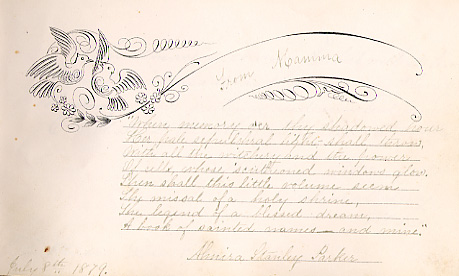 From Mamma
"When memory o'er the shadowed hour
Her pale sepulchral light shall throw,
With all the witchery and the power
Of cells, whose scutcheoned windows glow.
Then shall this little volume seem
The missal of a holy shrine,
The legend of a blessed dream,
A book of sainted names—and mine."
Almira Stanley Parker
July 8th 1879.